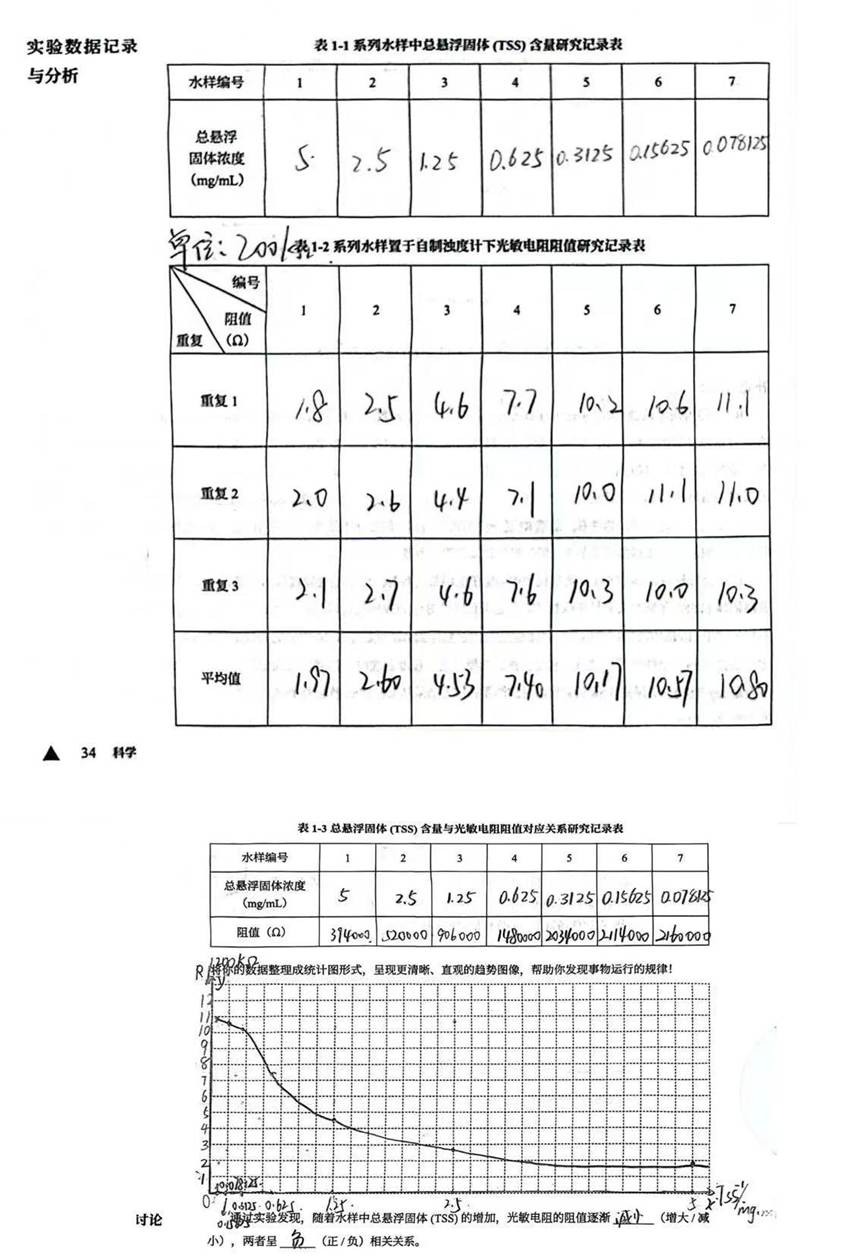 实验数据记录
与分析
表 1-1 系列水样中总悬浮固体 (TSS) 含量研究记录表
水样编号 1 2 3 4 5 6 7
总悬浮
固体浓度
(mg/mL)
5 2.5 1.25 0.625 0.3125 0.15625 0.078125
单位:200k
表 1-2 系列水样置于自制浊度计下光敏电阻阻值研究记录表
编号
阻值
(Ω)
重复
1 2 3 4 5 6 7
重复 1 1.8 2.5 4.6 7.7 10.2 10.6 11.1
重复 2 2.0 2.6 4.4 7.1 10.0 11.1 11.0
重复 3 2.1 2.7 4.6 7.6 10.3 10.0 10.3
平均值 1.97 2.60 4.53 7.40 10.17 10.57 10.80
▲ 34 科学
表 1-3 总悬浮固体 (TSS) 含量与光敏电阻阻值对应关系研究记录表
水样编号 1 2 3 4 5 6 7
总悬浮固体浓度
(mg/mL)
5 2.5 1.25 0.625 0.3125 0.15625 0.078125
阻值 (Ω) 394000 520000 906000 1480000 2034000 2114000 2160000
R/200kΩ
将你的数据整理成统计图形式,呈现更清晰、直观的趋势图像,帮助你发现事物运行的规律!
y
12
11
10
9
8
7
6
5
4
3
2
1
0 0.078125
0.3125 0.625 1.25 2.5 5 x TSS/mg
0.15625
讨论
通过实验发现,随着水样中总悬浮固体 (TSS) 的增加,光敏电阻的阻值逐渐 减小 (增大 / 减
小),两者呈 负 (正 / 负) 相关关系。